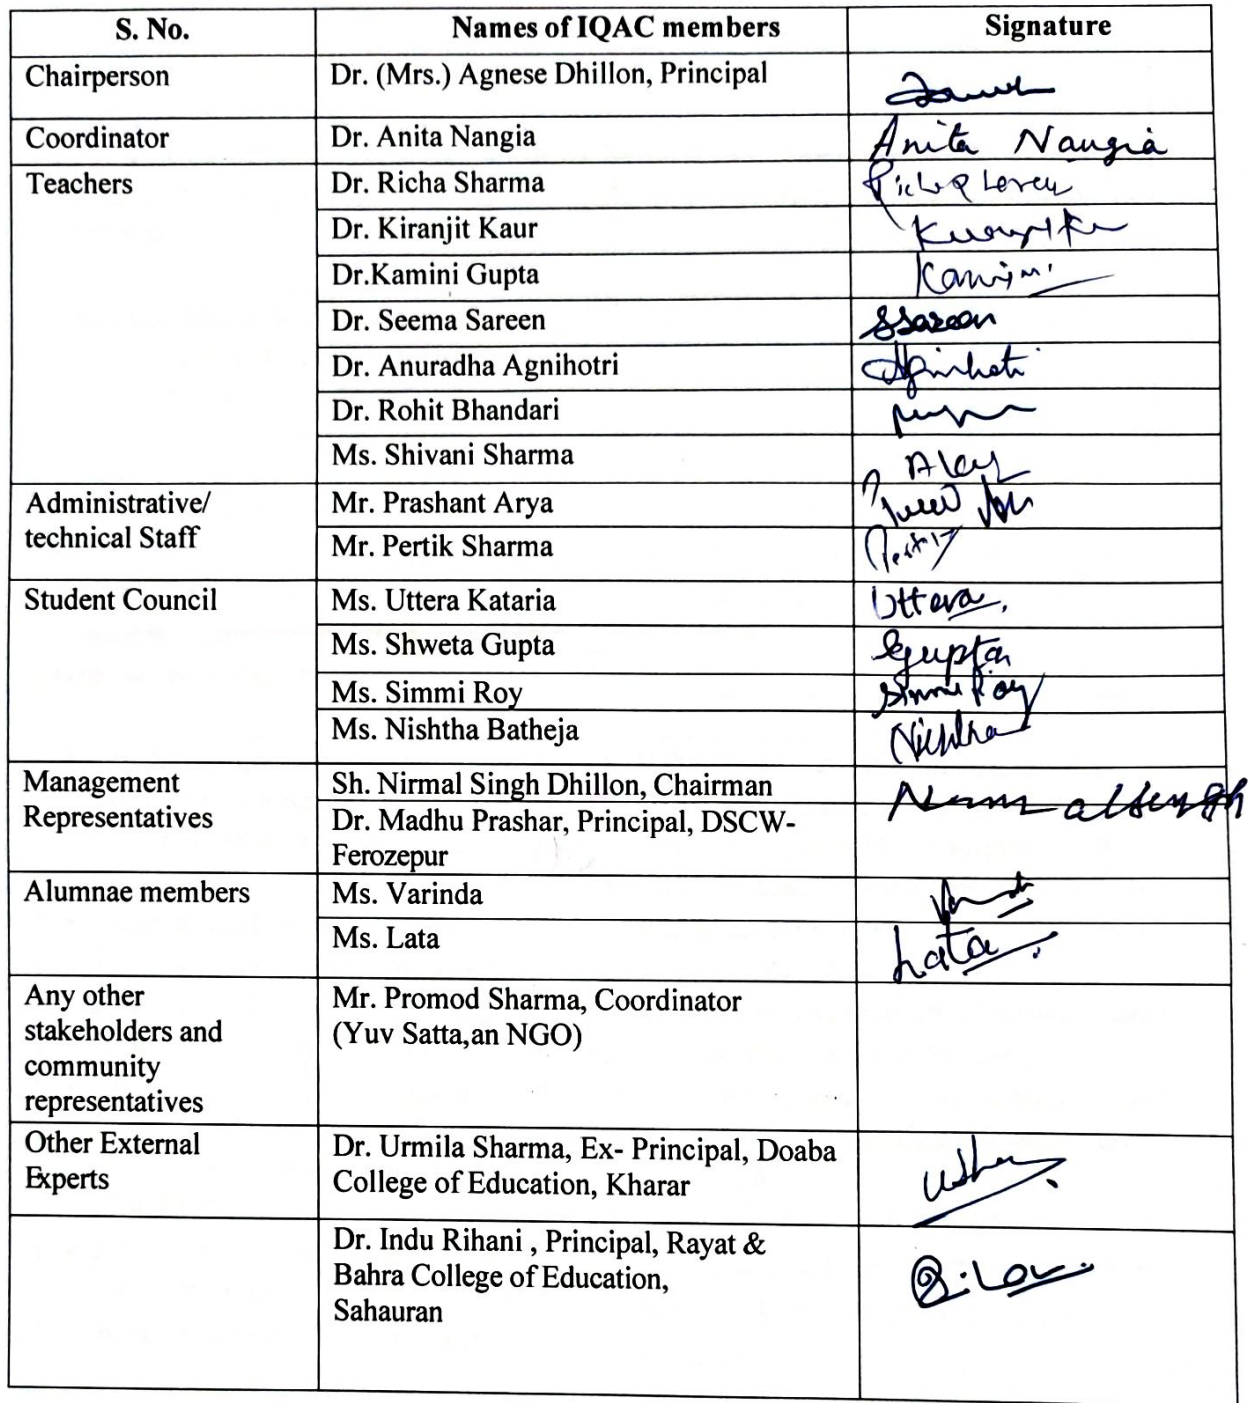 S. No. Names of IQAC members Signature
Chairperson Dr. (Mrs.) Agnese Dhillon, Principal
Coordinator Dr. Anita Nangia Anita Nangia
Teachers Dr. Richa Sharma
Dr. Kiranjit Kaur
Dr.Kamini Gupta Kamini
Dr. Seema Sareen SSareen
Dr. Anuradha Agnihotri Agnihotri
Dr. Rohit Bhandari
Ms. Shivani Sharma
Administrative/ Mr. Prashant Arya
technical Staff
Mr. Pertik Sharma
Student Council Ms. Uttera Kataria Uttera
Ms. Shweta Gupta Gupta
Ms. Simmi Roy Simmi Roy
Ms. Nishtha Batheja Nishtha
Management Sh. Nirmal Singh Dhillon, Chairman Nirmal Singh
Representatives Dr. Madhu Prashar, Principal, DSCW-
Ferozepur
Alumnae members Ms. Varinda
Ms. Lata Lata
Any other Mr. Promod Sharma, Coordinator
stakeholders and (Yuv Satta,an NGO)
community
representatives
Other External Dr. Urmila Sharma, Ex- Principal, Doaba
Experts College of Education, Kharar
Dr. Indu Rihani , Principal, Rayat &
Bahra College of Education,
Sahauran